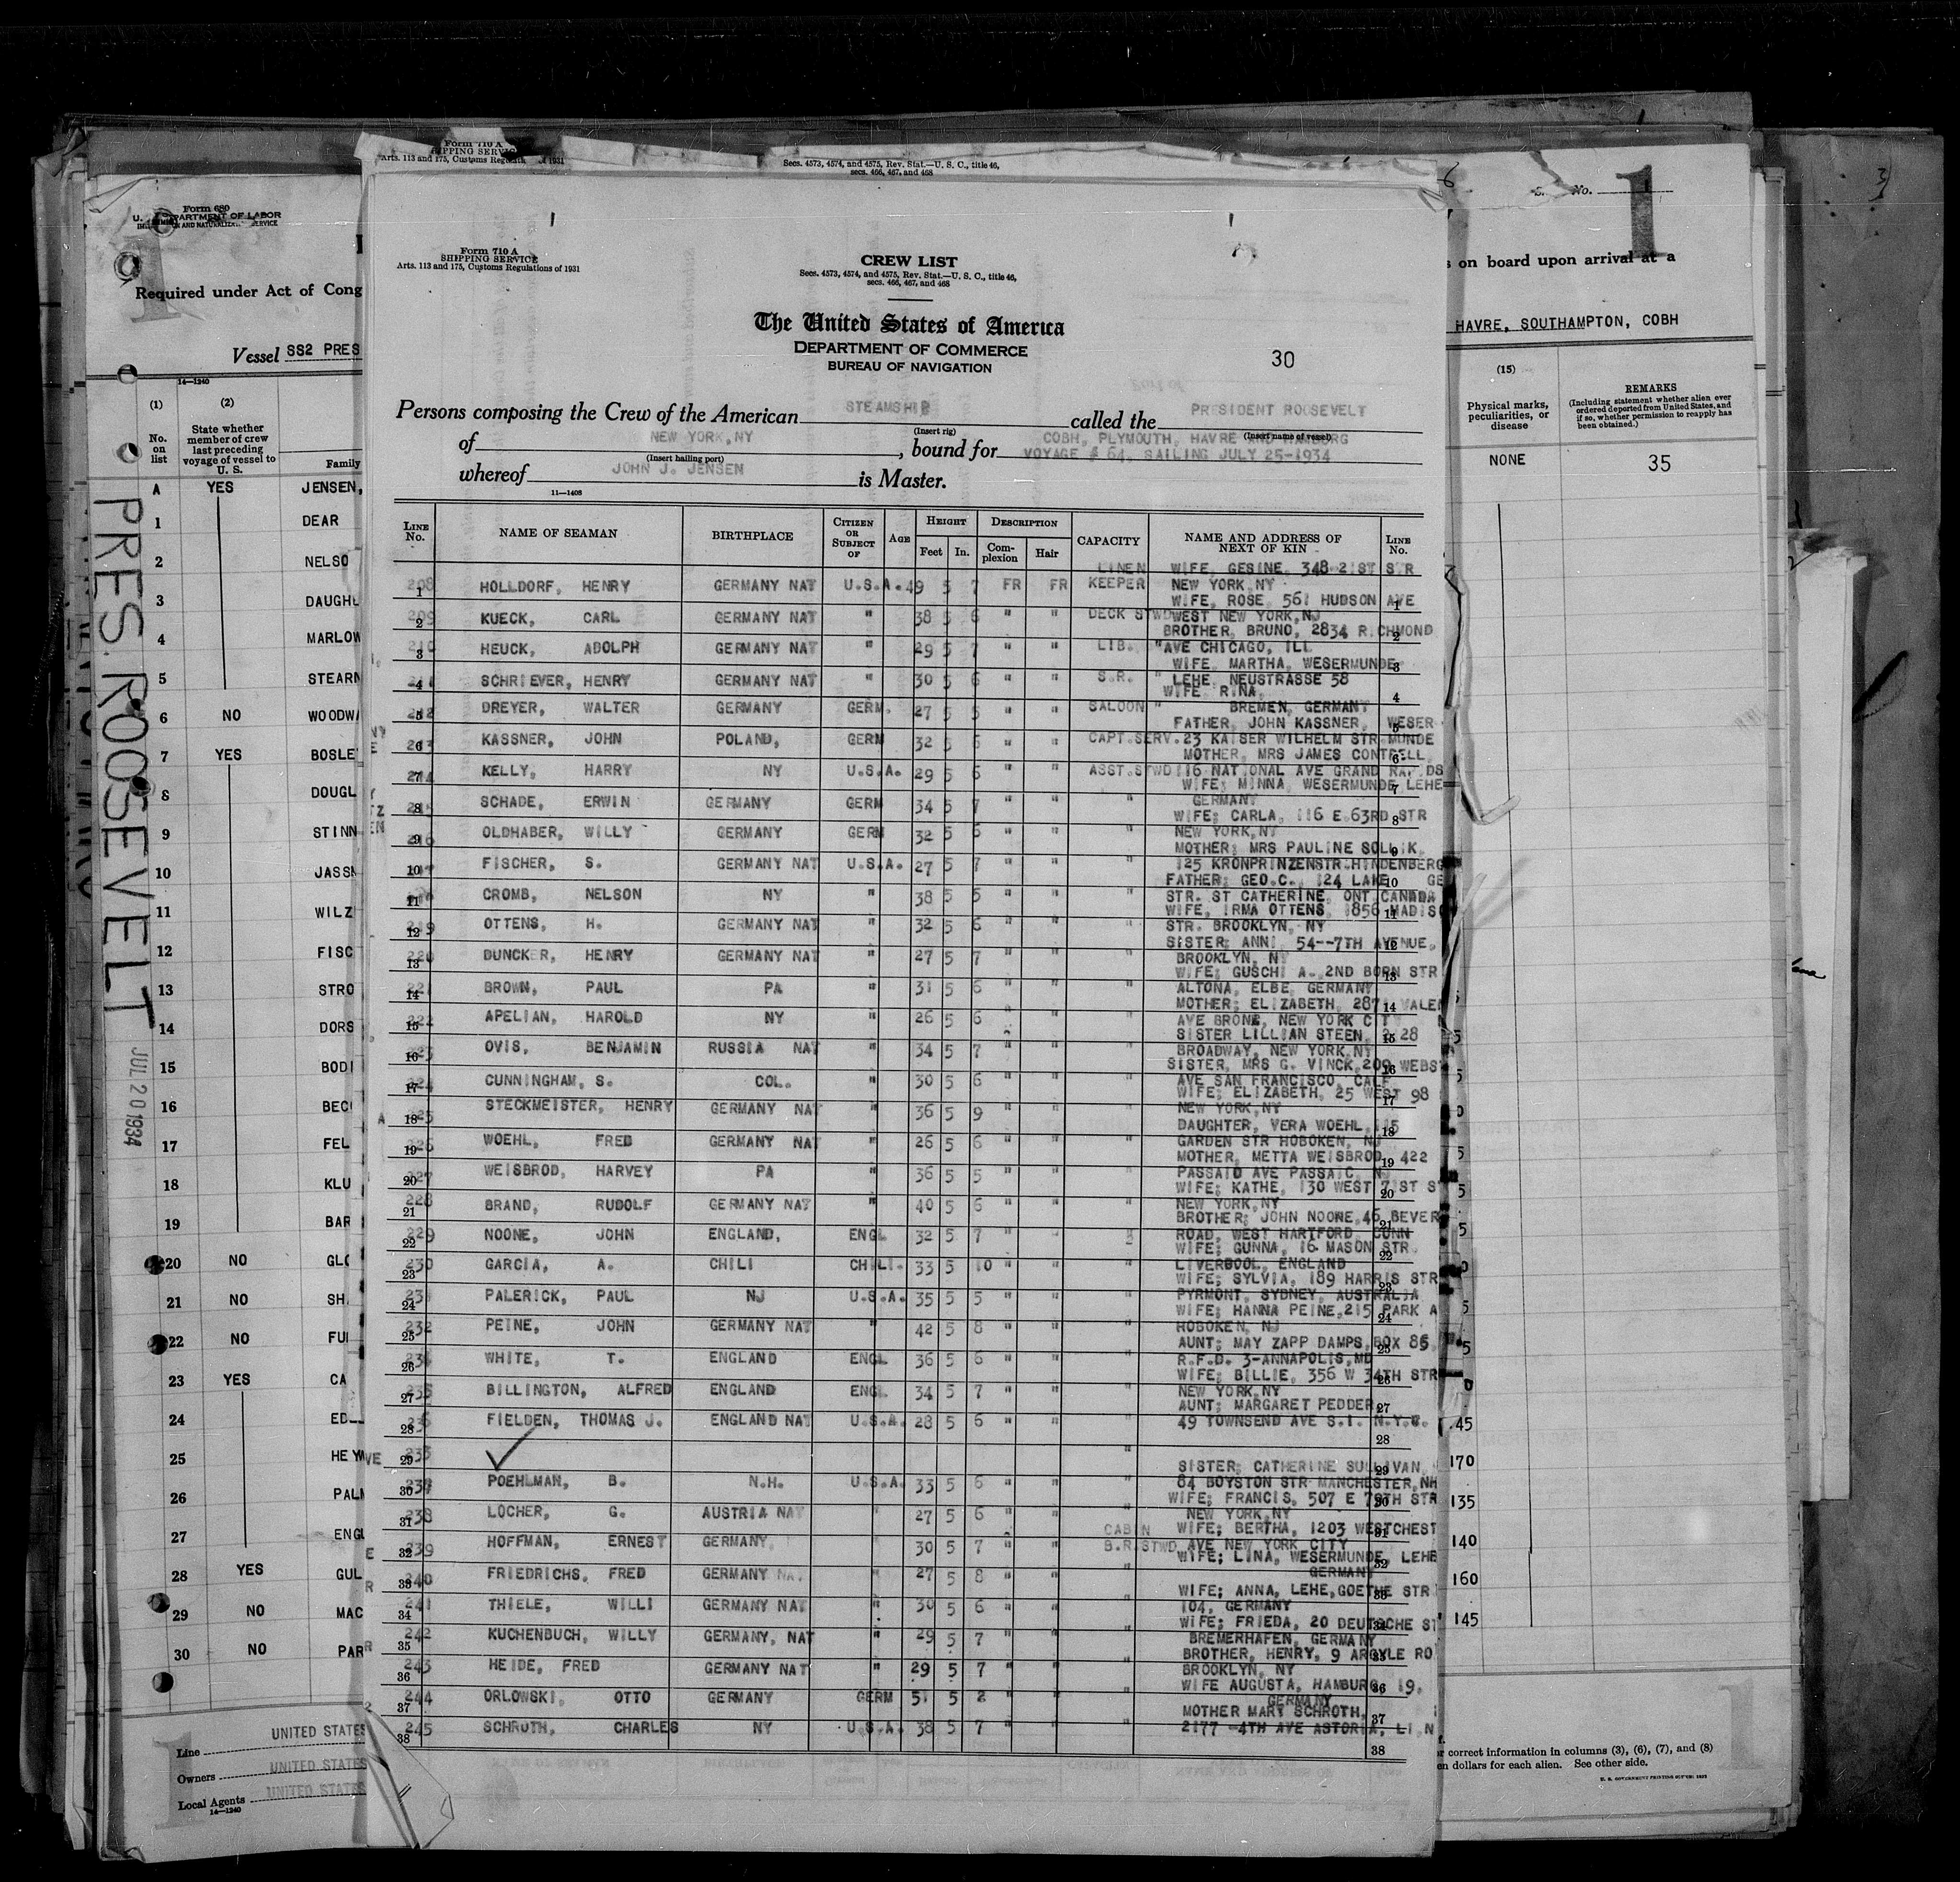 Form 710 A
SHIPPING SERVICE
Arts. 113 and 175, Customs Regulations of 1931
Secs. 4573, 4574, and 4575, Rev. Stat.—U. S. C., title 46,
secs. 466, 467, and 468
Form 680
DEPARTMENT OF LABOR
Required under Act of Cong
Vessel SS2 PRES
14—1240
(1) (2)
No. on list
State whether member of crew last preceding voyage of vessel to U. S.
Family
A YES JENSEN,
1 DEAR
2 NELSO
3 DAUGH
4 MARLOW
5 STEARN
6 NO WOODW
7 YES BOSLE
8 DOUGL
9 STINN
10 JASS
11 WILZ
12 FISC
13 STRO
14 DORS
15 BODI
16 BEC
17 FEL
18 KLU
19 BAR
20 NO GLO
21 NO SH
22 NO FU
23 YES CA
24 ED
25 HEY
26 PAL
27 ENG
28 YES GUL
29 NO MAC
30 NO PAR
Line UNITED STATES
Owners UNITED STATES
Local Agents UNITED STATES
14—1240
PRES. ROOSEVELT
JUL 20 1934
Form 710 A
SHIPPING SERVICE
Arts. 113 and 175, Customs Regulations of 1931
CREW LIST
Secs. 4573, 4574, and 4575, Rev. Stat.—U. S. C., title 46,
secs. 466, 467, and 468
The United States of America
DEPARTMENT OF COMMERCE
BUREAU OF NAVIGATION
30
Persons composing the Crew of the American STEAMSHIP called the PRESIDENT ROOSEVELT
(Insert rig) (Insert name of vessel)
of NEW YORK,NY , bound for COBH, PLYMOUTH, HAVRE AND HAMBURG
(Insert hailing port) VOYAGE # 64, SAILING JULY 25-1934
whereof JOHN J. JENSEN is Master.
11—1408
LINE No. NAME OF SEAMAN BIRTHPLACE CITIZEN OR SUBJECT OF AGE HEIGHT Feet In. DESCRIPTION Complexion Hair CAPACITY NAME AND ADDRESS OF NEXT OF KIN LINE No.
LINEN WIFE, GESINE, 348 21ST STR
208 1 HOLLDORF, HENRY GERMANY NAT U.S.A. 49 5 7 FR FR KEEPER NEW YORK,NY
WIFE, ROSE, 561 HUDSON AVE 1
209 2 KUECK, CARL GERMANY NAT " 38 5 6 " " DECK STWD WEST NEW YORK,NJ
BROTHER, BRUNO, 2834 RICHMOND 2
210 3 HEUCK, ADOLPH GERMANY NAT " 29 5 7 " " LIB. " AVE CHICAGO, ILL
WIFE, MARTHA, WESERMUNDE 3
4 SCHRIEVER, HENRY GERMANY NAT " 30 5 6 " " S.R. " LEHE, NEUSTRASSE 58
WIFE, RINA, 4
212 5 DREYER, WALTER GERMANY GERM. 27 5 5 " " SALOON " BREMEN, GERMANY
FATHER, JOHN KASSNER, WESER 5
213 6 KASSNER, JOHN POLAND, GERM 32 5 6 " " CAPT.SERV. 23 KAISER WILHELM STR MUNDE
MOTHER, MRS JAMES CONTRELL, 6
214 7 KELLY, HARRY NY U.S.A. 29 5 6 " " ASST.STWD 116 NATIONAL AVE GRAND RAPIDS
WIFE; MINNA, WESERMUNDE LEHE 7
215 8 SCHADE, ERWIN GERMANY GERM 34 5 7 " " " GERMANY
WIFE; CARLA, 116 E.63RD STR 8
216 9 OLDHABER, WILLY GERMANY GERM 32 5 6 " " " NEW YORK,NY
MOTHER; MRS PAULINE SOLLIK, 9
10 FISCHER, S. GERMANY NAT U.S.A. 27 5 7 " " " 125 KRONPRINZENSTR.HINDENBERG
FATHER; GEO.C., 124 LAKE 10 GE
11 CROMB, NELSON NY " 38 5 5 " " " STR. ST CATHERINE, ONT CANADA
WIFE, IRMA OTTENS, 1856 MADISO 11
219 12 OTTENS, H. GERMANY NAT " 32 5 6 " " " STR. BROOKLYN, NY
SISTER; ANNI, 54--7TH AVENUE, 12
220 13 DUNCKER, HENRY GERMANY NAT " 27 5 7 " " " BROOKLYN, NY
WIFE; GUSCHI A. 2ND BORN STR 13
221 14 BROWN, PAUL PA " 31 5 6 " " " ALTONA, ELBE, GERMANY
MOTHER; ELIZABETH, 287 VALE 14
222 15 APELIAN, HAROLD NY " 26 5 6 " " AVE BRONX, NEW YORK CIT
SISTER LILLIAN STEEN, 28 15
223 16 OVIS, BENJAMIN RUSSIA NAT " 34 5 7 " " " BROADWAY, NEW YORK,NY
SISTER, MRS G. VINCK, 200 WEBS 16
224 17 CUNNINGHAM, S. COL. " 30 5 6 " " " AVE SAN FRANCISCO, CALF
WIFE; ELIZABETH, 25 WEST 98 17
225 18 STECKMEISTER, HENRY GERMANY NAT " 36 5 9 " " " NEW YORK,NY
DAUGHTER, VERA WOEHL, 115 18
226 19 WOEHL, FRED GERMANY NAT " 26 5 6 " " " GARDEN STR HOBOKEN, NJ
MOTHER, METTA WEISBROD, 422 19
227 20 WEISBROD, HARVEY PA " 36 5 5 " " PASSAID AVE PASSAIC, N
WIFE; KATHE, 130 WEST 71ST ST 20
228 21 BRAND, RUDOLF GERMANY NAT " 40 5 6 " " " NEW YORK,NY
BROTHER; JOHN NOONE,46 BEVER 21
229 22 NOONE, JOHN ENGLAND, ENGL 32 5 7 " " " ROAD, WEST HARTFORD, CONN
WIFE; GUNNA, 16 MASON STR. 22
230 23 GARCIA, A. CHILI CHILI. 33 5 10 " " " LIVERBOOL, ENGLAND
WIFE; SYLVIA, 189 HARRIS STR 23
231 24 PALERICK, PAUL NJ U.S.A. 35 5 5 " " " PYRMONT, SYDNEY, AUSTRALIA
WIFE; HANNA PEINE,215 PARK A 24
232 25 PEINE, JOHN GERMANY NAT " 42 5 8 " " " HOBOKEN, NJ
AUNT; MAY ZAPP DAMPS, BOX 86, 25
26 WHITE, T. ENGLAND ENGL 36 5 6 " " " R.F.D. 3-ANNAPOLIS,MD
WIFE; BILLIE, 356 W 34TH STR 26
27 BILLINGTON, ALFRED ENGLAND ENGL 34 5 7 " " " NEW YORK,NY
AUNT; MARGARET PEDDER, 27
28 FIELDEN, THOMAS J. ENGLAND NAT U.S.A. 28 5 6 " " " 49 TOWNSEND AVE S.I. N.Y.C.
28
29 "
SISTER; CATHERINE SULLIVAN, 29
30 POEHLMAN, B. N.H. U.S.A. 33 5 6 " " 84 BOYSTON STR MANCHESTER,NH
WIFE; FRANCIS, 507 E 79TH STR 30
238 31 LOCHER, G. AUSTRIA NAT " 27 5 6 " " " NEW YORK,NY
CABIN WIFE; BERTHA, 1203 WESTCHEST 31
239 32 HOFFMAN, ERNEST GERMANY, 30 5 7 " " B.R.STWD AVE NEW YORK CITY
WIFE; LINA, WESERMUNDE, LEHE 32
240 33 FRIEDRICHS, FRED GERMANY NA. " 27 5 8 " " " GERMANY
WIFE; ANNA, LEHE,GOETHE STR 33
241 34 THIELE, WILLI GERMANY NAT " 30 5 6 " " " 104, GERMANY
WIFE; FRIEDA, 20 DEUTSCHE ST 34
242 35 KUCHENBUCH, WILLY GERMANY, NAT " 29 5 7 " " " BREMERHAFEN, GERMANY
BROTHER, HENRY, 9 ARGYLE RO 35
243 36 HEIDE, FRED GERMANY NAT " 29 5 7 " " " BROOKLYN, NY
WIFE AUGUSTA, HAMBURG, 19, 36
244 37 ORLOWSKI, OTTO GERMANY GERM 51 5 2 " " " GERMANY
MOTHER MARY SCHROTH, 37
245 38 SCHROTH, CHARLES NY U.S.A. 38 5 7 " " " 2177 -4TH AVE ASTORIA, LI N
38
No.
1
s on board upon arrival at a
HAVRE, SOUTHAMPTON, COBH
(15)
Physical marks, peculiarities, or disease
REMARKS
(Including statement whether alien ever ordered deported from United States, and if so, whether permission to reapply has been obtained.)
NONE 35
145
170
135
140
160
145
correct information in columns (3), (6), (7), and (8)
en dollars for each alien. See other side.